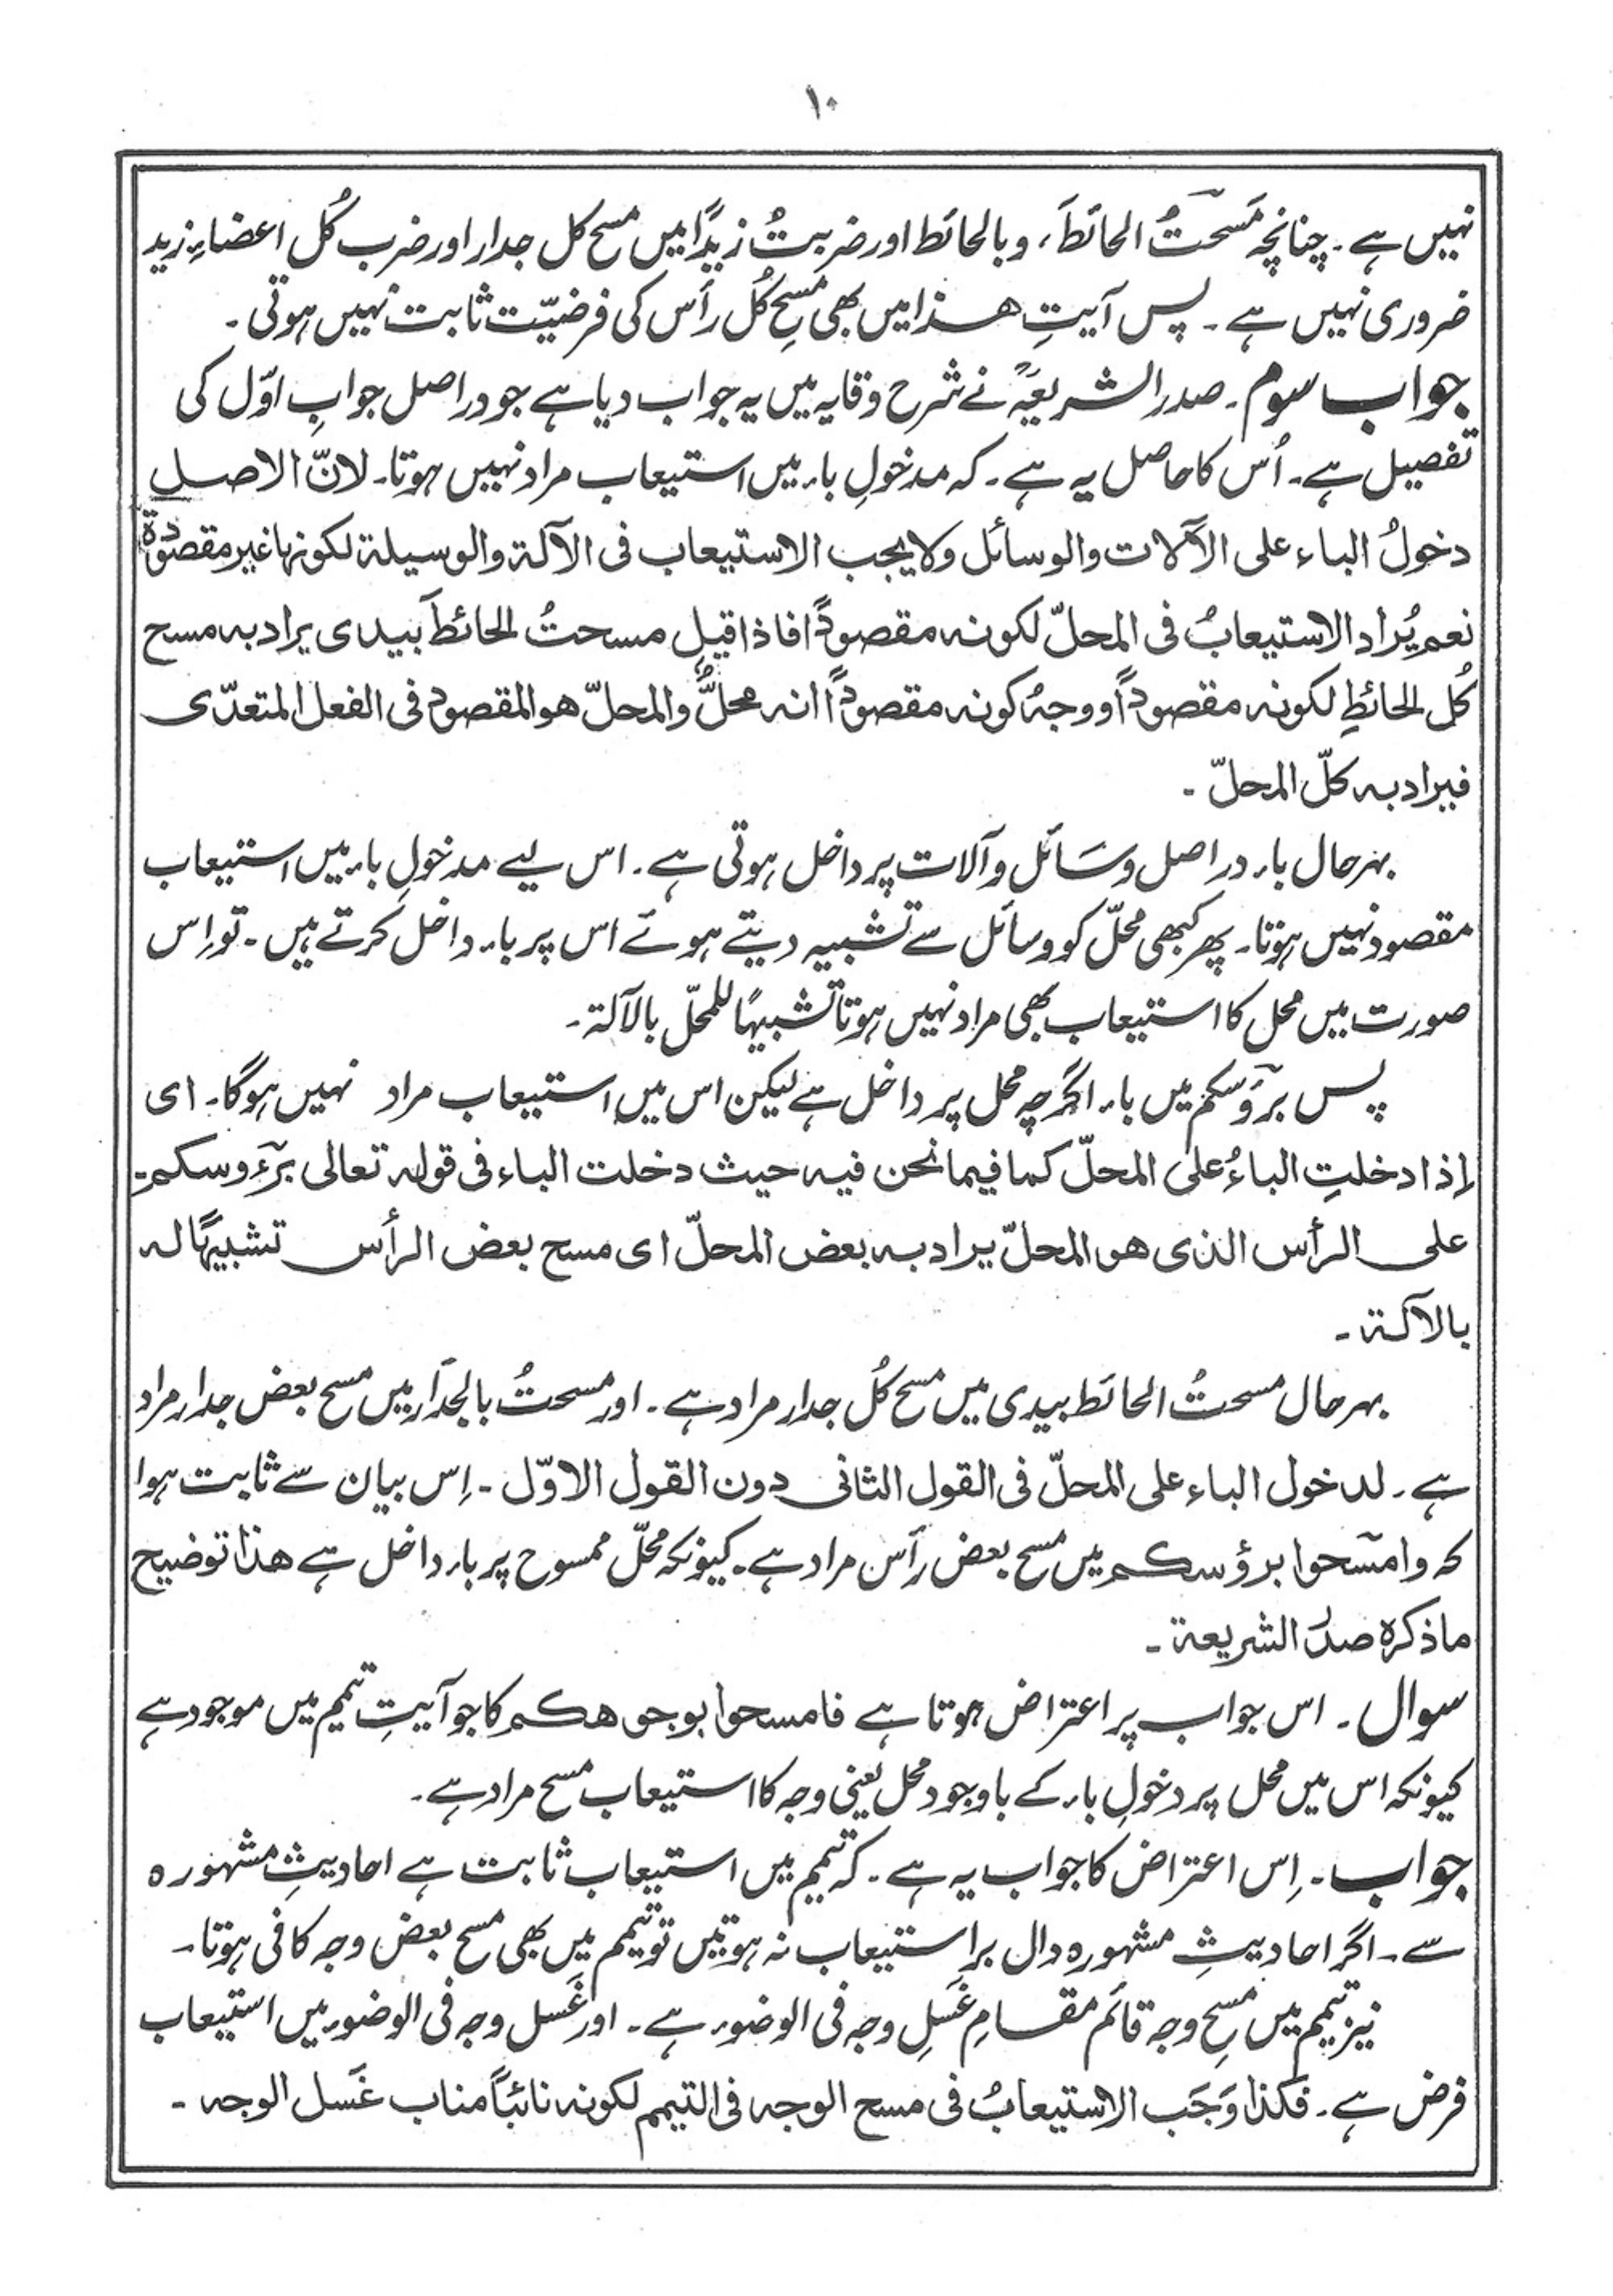 ۱۰
نہیں ہے۔ چنانچہ مَسَحتُ الحائطَ، وبالحائط اور ضربتُ زیدًا میں مسح کل جدار اور ضرب کُل اعضاءِ زید
ضروری نہیں ہے۔ پس آیتِ ھذا میں بھی مسحِ کُل رأس کی فرضیّت ثابت نہیں ہوتی۔
جواب سوم۔ صدر الشریعۃؒ نے شرح وقایہ میں یہ جواب دیا ہے جو دراصل جوابِ اوّل کی
تفصیل ہے۔ اُس کا حاصل یہ ہے۔ کہ مدخولِ باء میں استیعاب مراد نہیں ہوتا۔ لانّ الاصل
دخولُ الباء علی الآلات والوسائل ولا یجب الاستیعاب فی الآلۃ والوسیلۃ لکونہا غیر مقصودۃ
نعم یُراد الاستیعابُ فی المحلّ لکونہ مقصودًا فاذا قیل مسحتُ الحائطَ بیدی یراد بہ مسح
کُل الحائطِ لکونہ مقصودًا ووجہُ کونہ مقصودًا انہ محلٌّ والمحلّ ھو المقصود فی الفعل المتعدّی
فیراد بہ کلّ المحلّ۔
بہرحال باء دراصل وسَائل وآلات پر داخل ہوتی ہے۔ اس لیے مدخولِ باء میں استیعاب
مقصود نہیں ہوتا۔ پھر کبھی محلّ کو وسائل سے تشبیہ دیتے ہوئے اس پر باء داخل کرتے ہیں۔ تو اِس
صورت میں محل کا استیعاب بھی مراد نہیں ہوتا تشبیہًا للمحلّ بالآلۃ۔
پس برؤسکم میں باء اگرچہ محل پر داخل ہے لیکن اس میں استیعاب مراد نہیں ہوگا۔ ای
اِذا دخلتِ الباءُ علی المحلّ کما فیما نحن فیہ حیث دخلت الباء فی قولہ تعالی برءوسکم۔
علی الرأس الذی ھو المحلّ یراد بہ بعض المحلّ ای مسح بعض الرأس تشبیہًا لہ
بالآلۃ۔
بہرحال مسحتُ الحائط بیدی میں مسح کُل جدار مراد ہے۔ اور مسحتُ بالجدار میں مسح بعض جدار مراد
ہے۔ لدخول الباء علی المحلّ فی القول الثانی دون القول الاوّل۔ اِس بیان سے ثابت ہوا
کہ وامسَحوا برؤسکم میں مسح بعض رأس مراد ہے۔ کیونکہ محلّ ممسوح پر باء داخل ہے ھذا توضیح
ماذکرہ صدرُ الشریعۃ۔
سوال۔ اس جواب پر اعتراض ہوتا ہے فامسحوا بوجوھکم کا جو آیتِ تیمم میں موجود ہے
کیونکہ اس میں محل پر دخولِ باء کے باوجود محل یعنی وجہ کا استیعاب مسح مراد ہے۔
جواب۔ اِس اعتراض کا جواب یہ ہے۔ کہ تیمم میں استیعاب ثابت ہے احادیثِ مشہورہ
سے۔ اگر احادیثِ مشہورہ دال بر استیعاب نہ ہوتیں تو تیمم میں بھی مسح بعض وجہ کافی ہوتا۔
نیز تیمم میں مسحِ وجہ قائم مقامِ غَسلِ وجہ فی الوضوء ہے۔ اور غَسل وجہ فی الوضوء میں استیعاب
فرض ہے۔ فکذا وَجَب الاستیعابُ فی مسح الوجہ فی التیمم لکونہ نائبًا مناب غَسل الوجہ۔